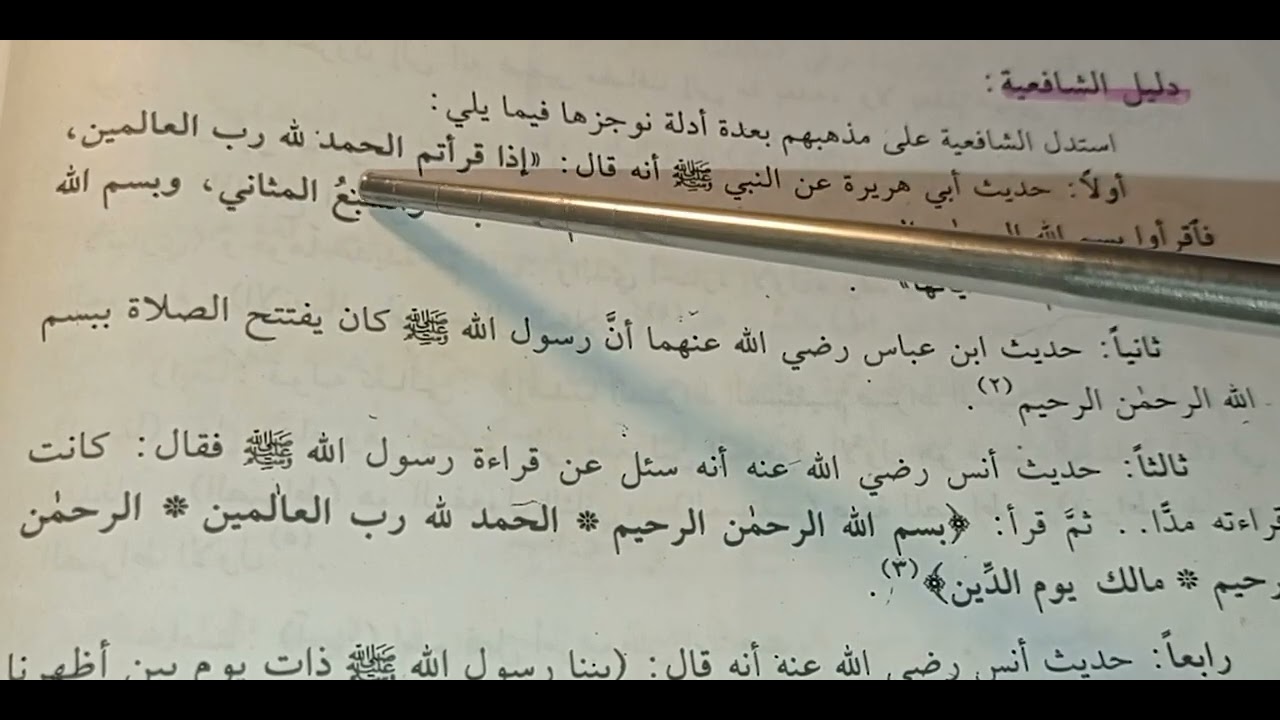 دليل الشافعية :
استدل الشافعية على مذهبهم بعدة أدلة نوجزها فيما يلي :
أولاً : حديث أبي هريرة عن النبي ﷺ أنه قال : «إذا قرأتم الحمد لله رب العالمين ،
فاقرأوا بسم الله المثاني ، وبسم الله
ثانياً : حديث ابن عباس رضي الله عنهما أنَّ رسول الله ﷺ كان يفتتح الصلاة ببسم
الله الرحمٰن الرحيم(٢) .
ثالثاً : حديث أنس رضي الله عنه أنه سئل عن قراءة رسول الله ﷺ فقال : كانت
قراءته مدًّا . . ثمَّ قرأ : ﴿بسم الله الرحمٰن الرحيم * الحمد لله رب العالمين * الرحمٰن
رحيم * مالك يوم الدِّين﴾(٣) .
رابعاً : حديث أنس رضي الله عنه أنه قال : (بينا رسول الله ﷺ ذات يوم بين أظهرنا